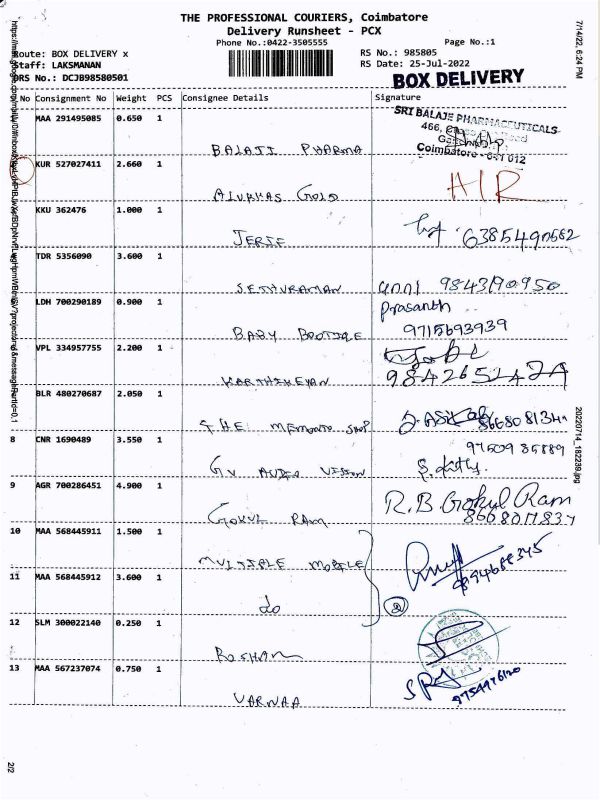 THE PROFESSIONAL COURIERS, Coimbatore
Delivery Runsheet - PCX
Phone No.:0422-3505555 Page No.:1
Route: BOX DELIVERY x RS No.: 985805
Staff: LAKSMANAN RS Date: 25-Jul-2022
DRS No.: DCJB98580501 BOX DELIVERY
No Consignment No Weight PCS Consignee Details Signature
MAA 291495085 0.650 1
SRI BALAJE PHARMACEUTICALS
466,
Coimbatore - 641 012
BALAJI PHARMA
KUR 527027411 2.660 1
ALUKKAS GOLD H/R
KKU 362476 1.000 1
JERIE 6385490562
TDR 5356090 3.600 1
SETHURAMAN unni 9843190950
LDH 700290189 0.900 1 Prasanth
BABY BOUTIQUE 9715693939
VPL 334957755 2.200 1
KARTHIKEYAN
BLR 480270687 2.050 1
THE MEMENTO SHOP
8 CNR 1690489 3.550 1
GV AUDIO VISION
9 AGR 700286451 4.900 1
GOKUL RAM R.B Gokul Ram
10 MAA 568445911 1.500 1
MULTIPLE MOBILE
11 MAA 568445912 3.600 1
do 2
12 SLM 300022140 0.250 1
ROSHAN
13 MAA 567237074 0.750 1
VARNAA
7/14/22, 6:24 PM
20220714_182239.jpg
2/2